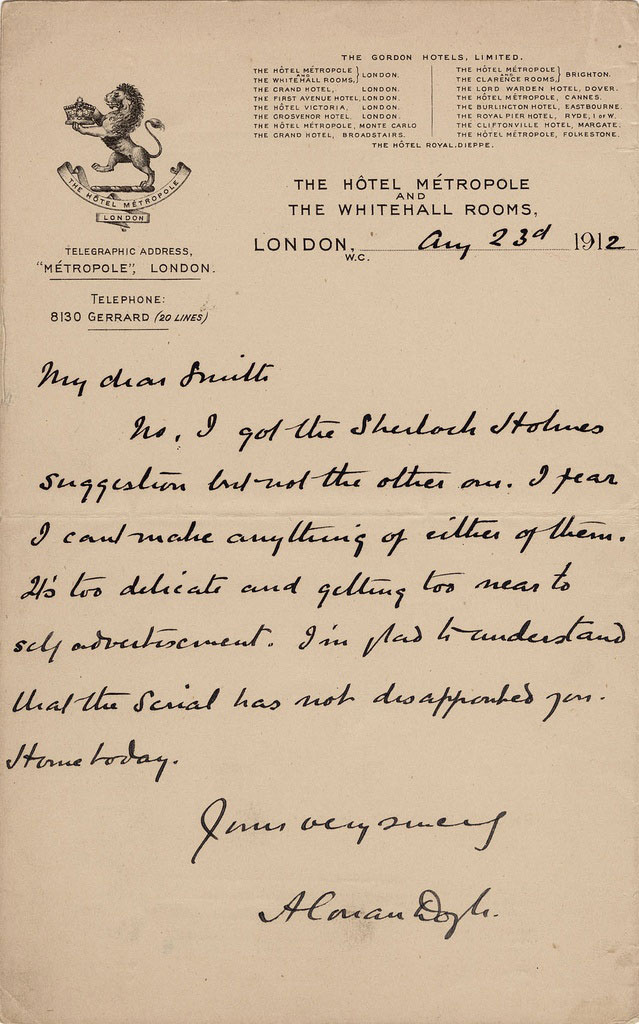 THE GORDON HOTELS, LIMITED.
THE HÔTEL MÉTROPOLE
AND
THE WHITEHALL ROOMS, } LONDON.
THE GRAND HOTEL, LONDON.
THE FIRST AVENUE HOTEL, LONDON.
THE HÔTEL VICTORIA, LONDON.
THE GROSVENOR HOTEL LONDON.
THE HÔTEL MÉTROPOLE, MONTE CARLO
THE GRAND HOTEL, BROADSTAIRS.
THE HÔTEL MÉTROPOLE
AND
THE CLARENCE ROOMS, } BRIGHTON.
THE LORD WARDEN HOTEL, DOVER.
THE HÔTEL MÉTROPOLE, CANNES.
THE BURLINGTON HOTEL, EASTBOURNE.
THE ROYAL PIER HOTEL, RYDE, I of W.
THE CLIFTONVILLE HOTEL, MARGATE.
THE HÔTEL MÉTROPOLE, FOLKESTONE.
THE HÔTEL ROYAL, DIEPPE.
THE HÔTEL MÉTROPOLE
LONDON
TELEGRAPHIC ADDRESS,
"MÉTROPOLE", LONDON.
TELEPHONE:
8130 GERRARD (20 LINES)
THE HÔTEL MÉTROPOLE
AND
THE WHITEHALL ROOMS,
LONDON, Aug 23d 1912
W.C.
My dear Smith
No, I got the Sherlock Holmes
suggestion but not the other one. I fear
I cant make anything of either of them.
It's too delicate and getting too near to
self advertisement. I'm glad to understand
that the Serial has not disappointed you.
Home today.
Yours very sincerely
A Conan Doyle.